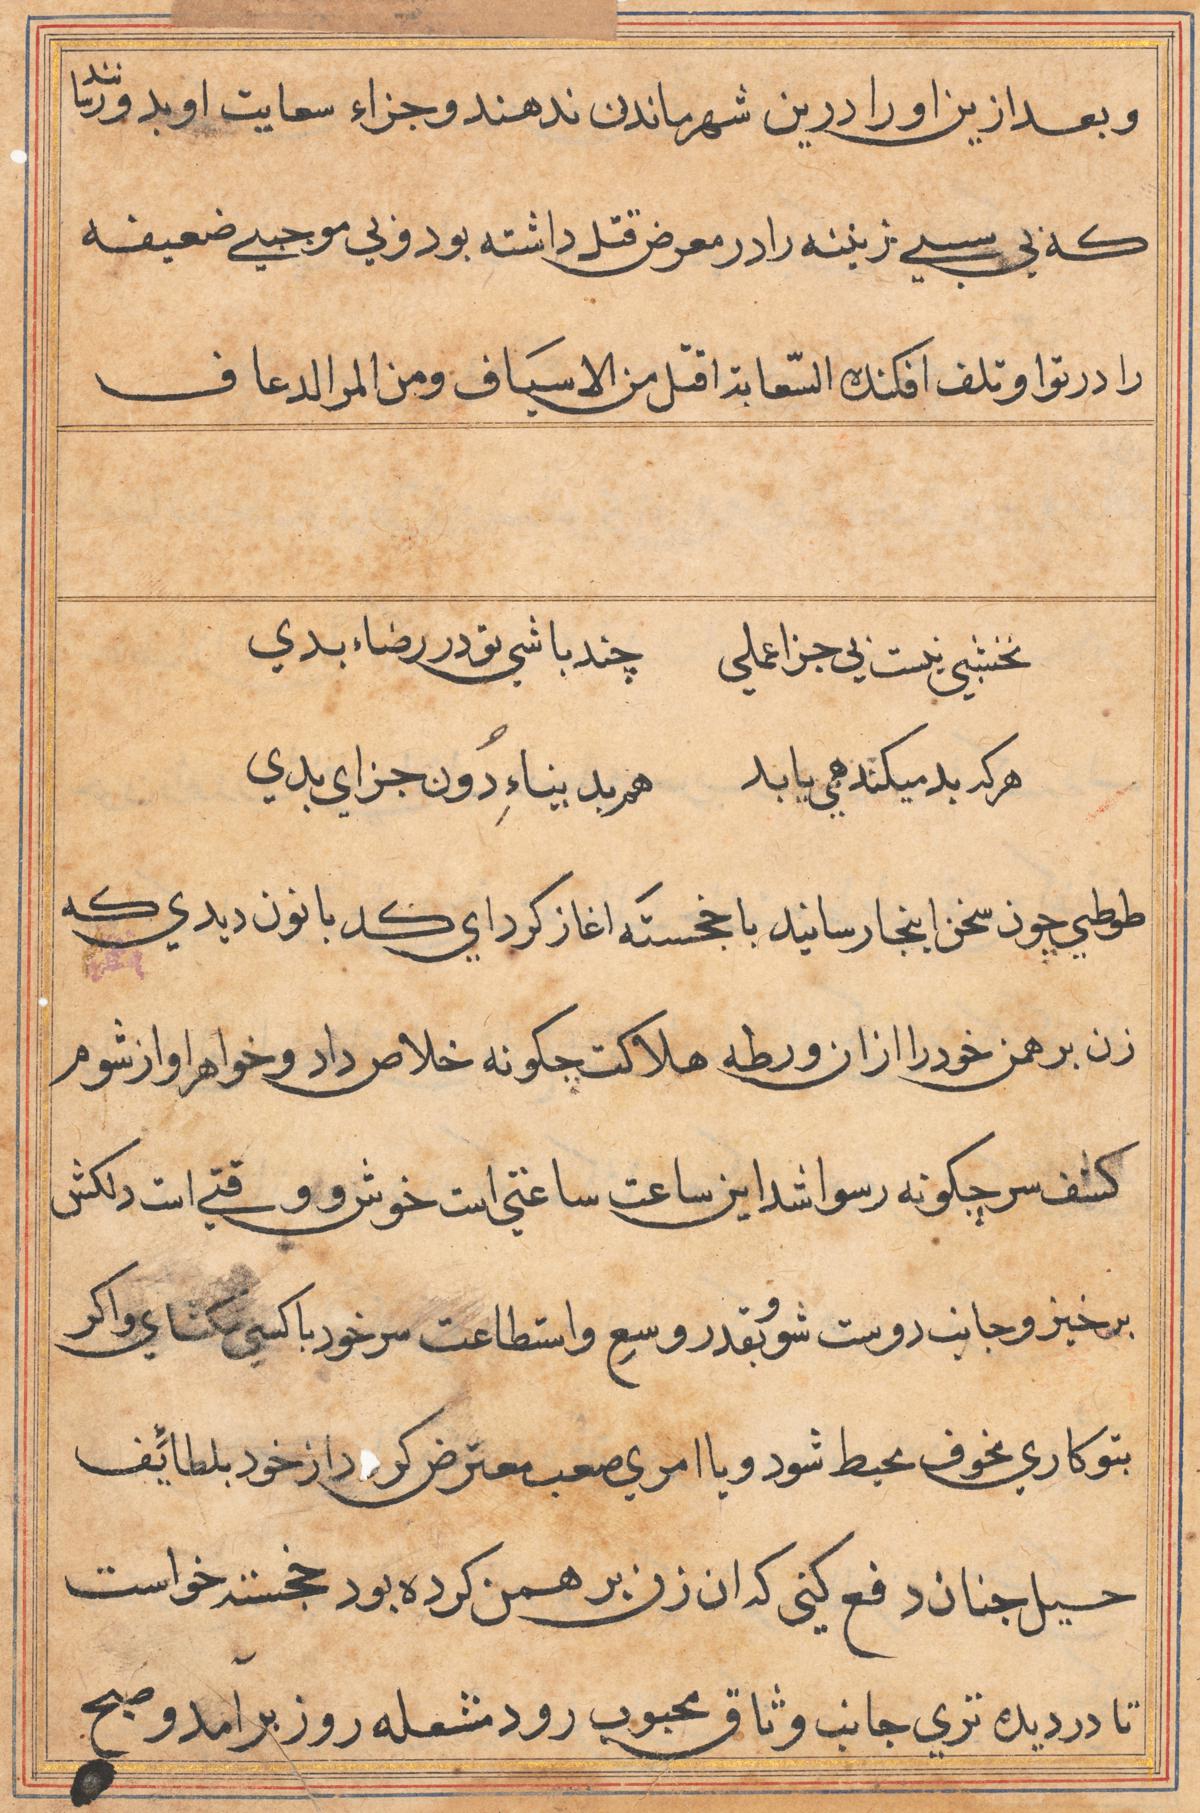 و بعد ازین او را درین شهر ماندن ندهند و جزاء سعایت او بدو رسانند
که بی سببی زنینه را در معرض قتل داشته بود و بی موجبی ضعیفه
را در توا و تلف افکنده السّعایة اقتل من الاسیَاف و من المر الدعاف
نخشبی نیست بی جزا عملی چند باشی تو در رضاء بدی
هرکه بد میکند همی یابد هم بد بیناءِ دُون جزای بدی
طوطی چون سخن اینجا رسانید با خجستَه اغاز کرد ای کد بانون دیدی که
زن برهمن خود را ازان ورطه هلاکت چکونه خلاص داد و خواهر او از شوم
کشف سر چکونه رسوا شد این ساعت ساعتی است خوش و وقتی است دلکش
برخیز و جانب دوست شو و بقدر وسع و استطاعت سر خود با کسی نکشای و اکر
بتو کاری مخوف محیط شود و یا امری صعب معترض کردد از خود بلطائف
حیل جنان دفع کنی که ان زن برهمن کرده بود خجسته خواست
تا در دیده تری جانب وثاق محبوب رود مشعله روز برآمد و صبح